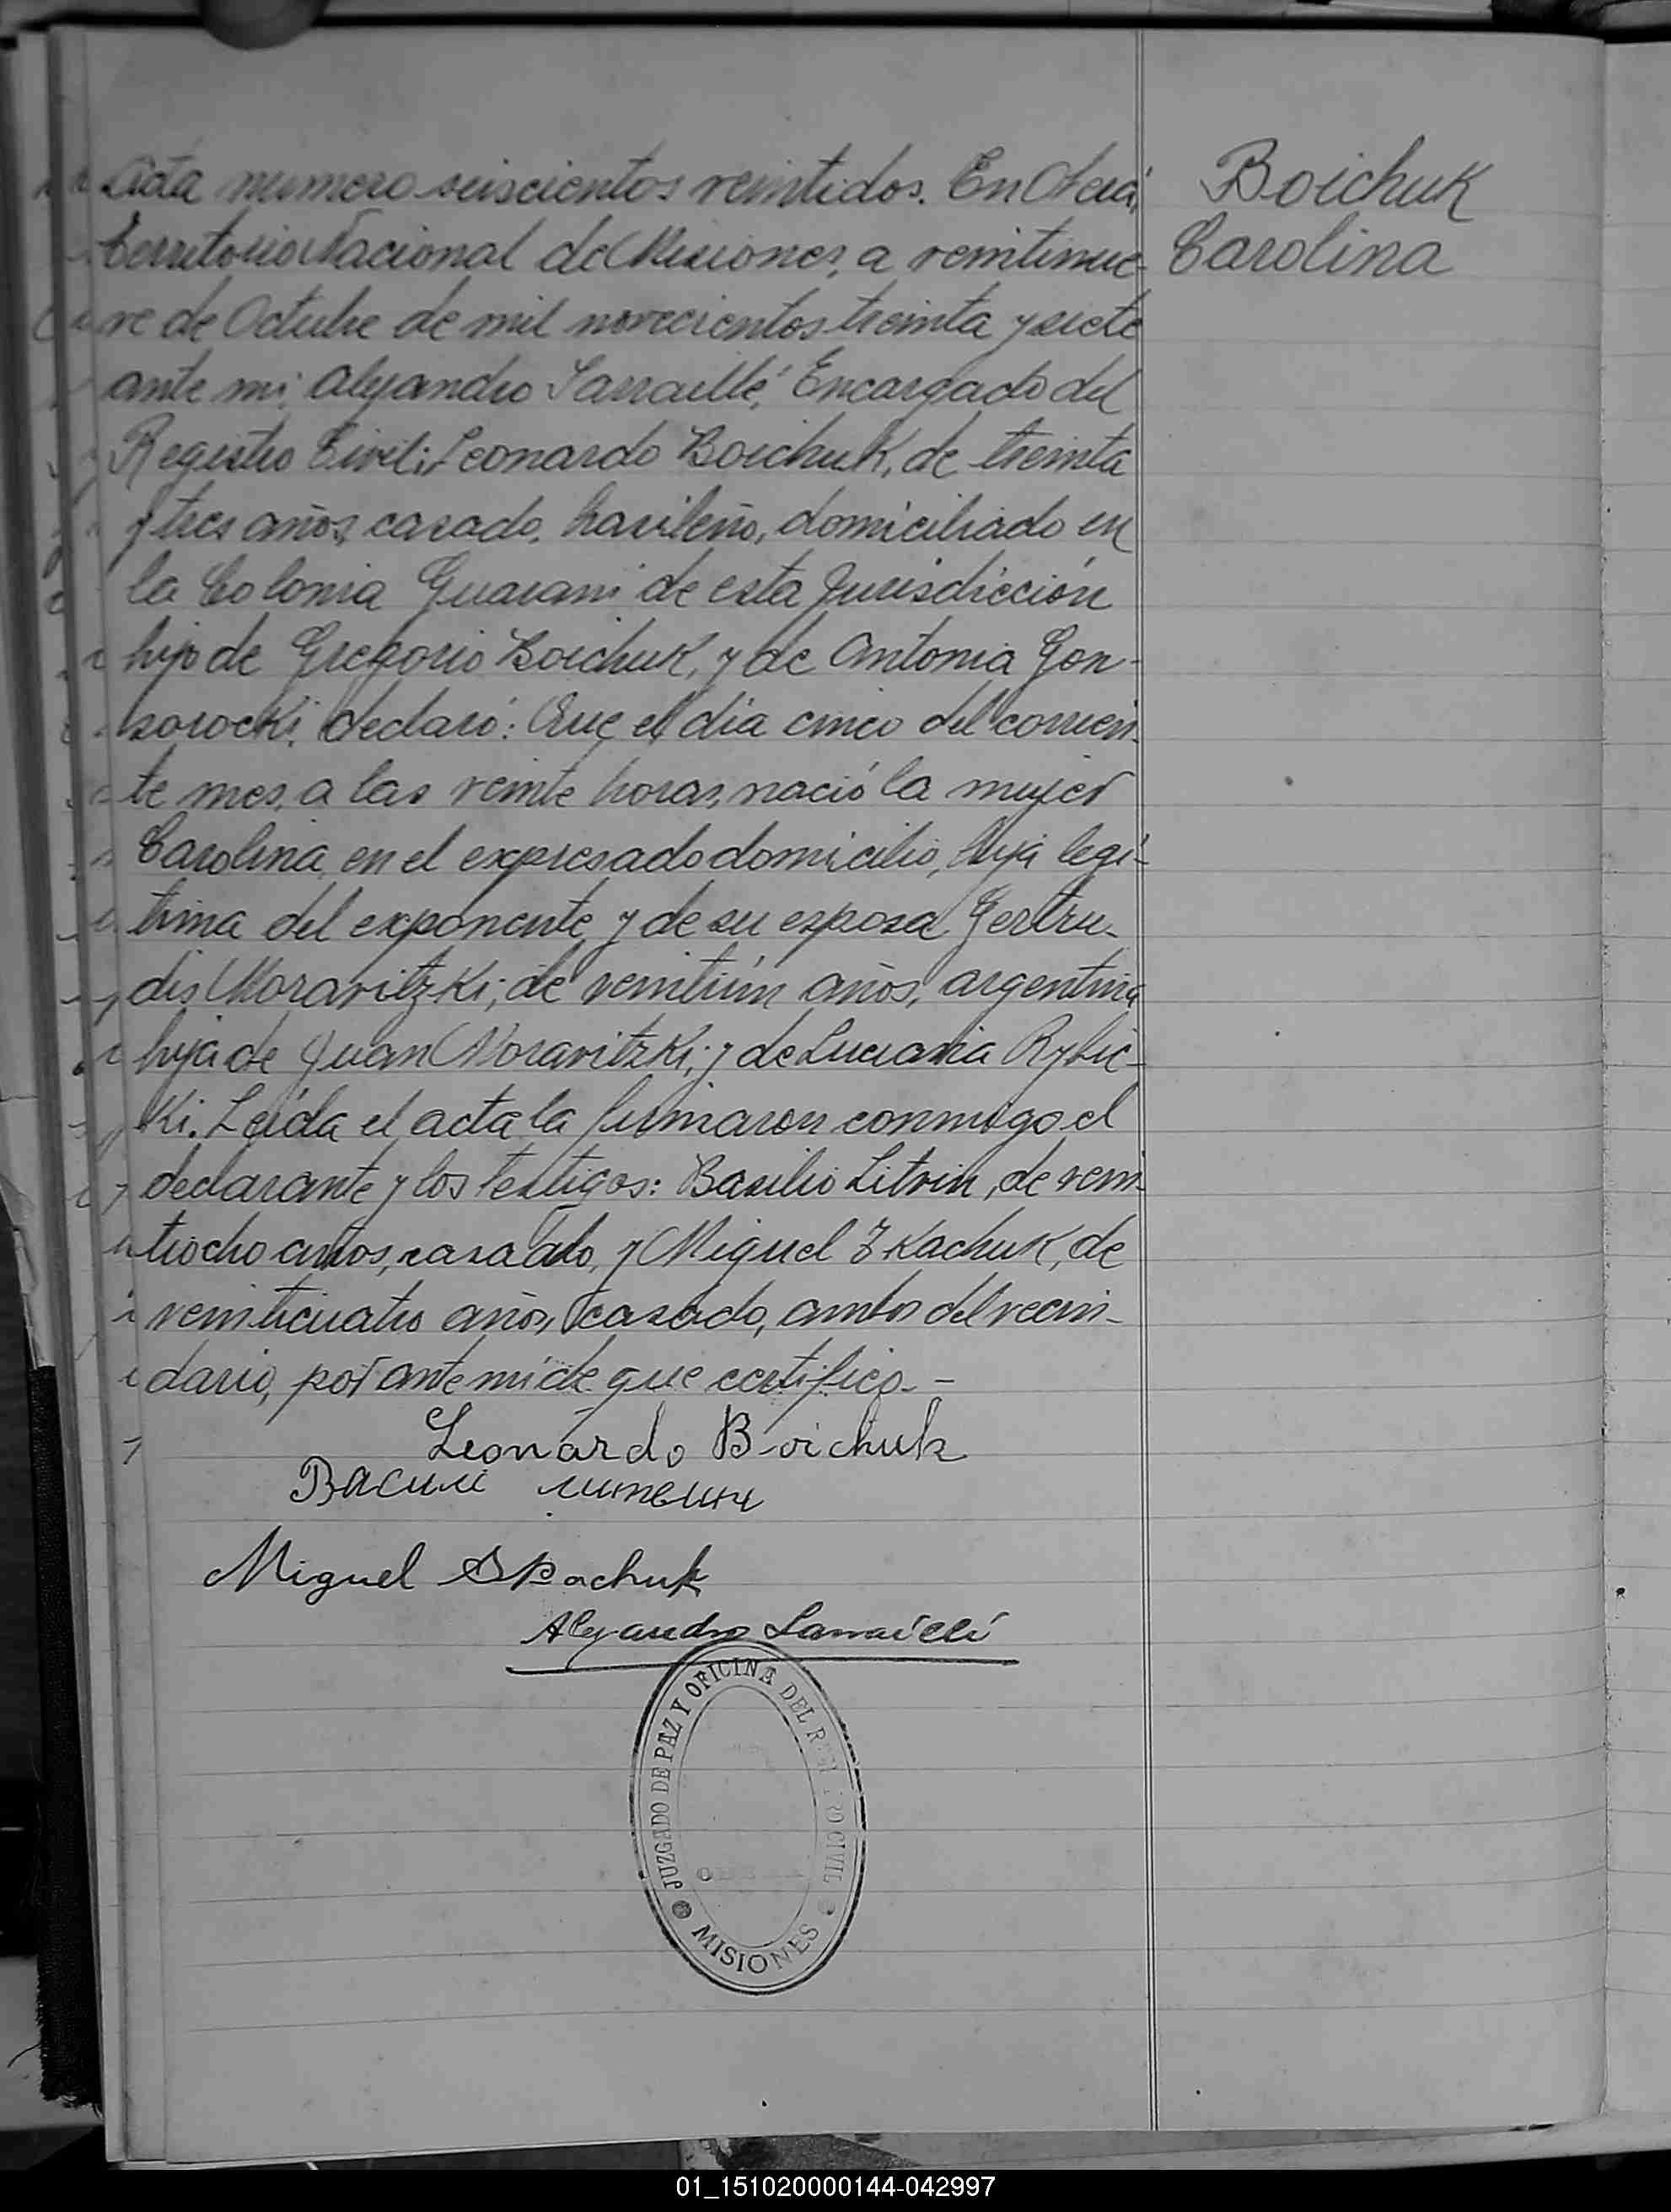 Boichuk
Carolina
Acta numero seiscientos veintidos. En Oberá,
Territorio Nacional de Misiones, a veintinue-
ve de Octubre de mil novecientos treinta y siete
ante mi, Alejandro Sarraillé, Encargado del
Registro Civil; Leonardo Boichuk, de treinta
y tres años, casado, brasileño, domiciliado en
la Colonia Guarani de esta Jurisdicción
hijo de Gregorio Boichuk, y de Antonia Gon-
sorocki, declaró: Que el día cinco del corrien-
te mes, a las veinte horas, nació la mujer
Carolina, en el expresado domicilio, hija legí-
tima del exponente y de su esposa Gertru-
dis Moravitzki; de veintiún años, argentina
hija de Juan Moravitzki; y de Luciana Rybic-
ki. Leída el acta la firmaron conmigo el
declarante y los testigos: Basilio Litvin, de vein-
tiocho años, casado, y Miguel Skachuk, de
veinticuatro años, casado, ambos del vecin-
dario, por ante mí de que certifico.-
Leonardo Boichuk
Васили литвин
Miguel Skachuk
Alejandro Sarraillé
JUZGADO DE PAZ Y OFICINA DEL REGISTRO CIVIL
MISIONES
01_151020000144-042997